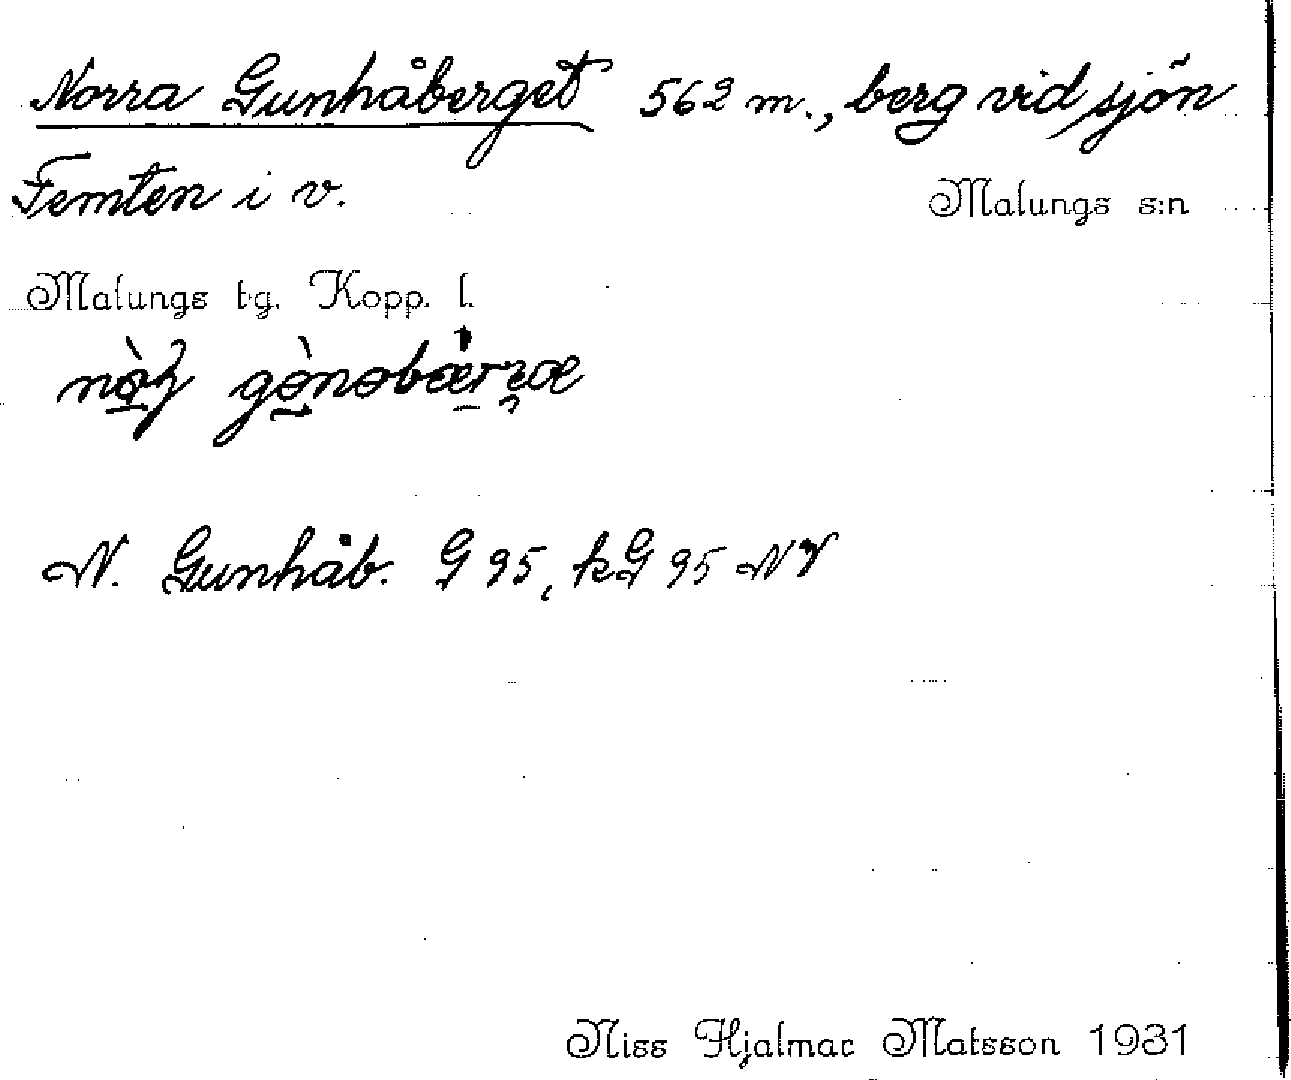 Norra Gunhåberget 562 m., berg vid sjön
Femten i v.
Malungs s:n
Malungs tg. Kopp. l.
N. Gunhåb. G 95, kG 95 NV
Niss Hjalmar Matsson 1931